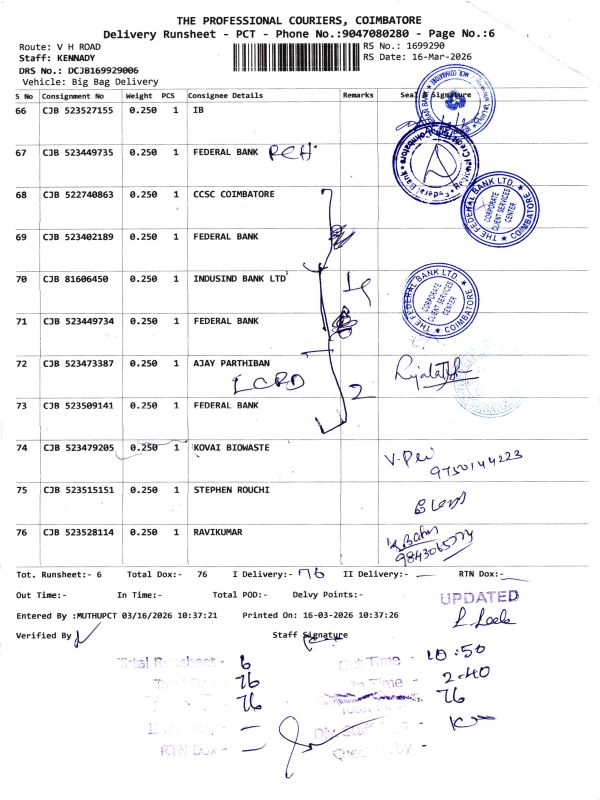 THE PROFESSIONAL COURIERS, COIMBATORE
Delivery Runsheet - PCT - Phone No.:9047080280 - Page No.:6
Route: V H ROAD
RS No.: 1699290
Staff: KENNADY
RS Date: 16-Mar-2026
DRS No.: DCJB169929006
Vehicle: Big Bag Delivery
S No Consignment No Weight PCS Consignee Details Remarks Seal & Signature
66 CJB 523527155 0.250 1 IB
67 CJB 523449735 0.250 1 FEDERAL BANK
68 CJB 522740863 0.250 1 CCSC COIMBATORE
THE FEDERAL BANK LTD. CORPORATE CLIENT SERVICES CENTER COIMBATORE
69 CJB 523402189 0.250 1 FEDERAL BANK
70 CJB 81606450 0.250 1 INDUSIND BANK LTD
THE FEDERAL BANK LTD CORPORATE CLIENT SERVICES CENTER COIMBATORE
71 CJB 523449734 0.250 1 FEDERAL BANK
72 CJB 523473387 0.250 1 AJAY PARTHIBAN
73 CJB 523509141 0.250 1 FEDERAL BANK
2
74 CJB 523479205 0.250 1 KOVAI BIOWASTE
9750144223
75 CJB 523515151 0.250 1 STEPHEN ROUCHI
76 CJB 523528114 0.250 1 RAVIKUMAR
Tot. Runsheet:- 6 Total Dox:- 76 I Delivery:- 76 II Delivery:- — RTN Dox:- —
Out Time:- In Time:- Total POD:- Delvy Points:-
UPDATED
Entered By :MUTHUPCT 03/16/2026 10:37:21 Printed On: 16-03-2026 10:37:26
Verified By
Staff Signature
Total Runsheet - 6
Out Time - 10:50
76
In Time - 2.40
76
76
RTN Dox -